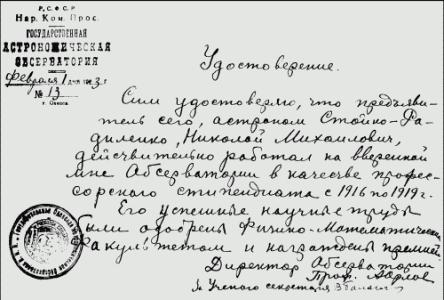 Р.С.Ф.С.Р
Нар. Ком. Прос.
ГОСУДАРСТВЕННАЯ
АСТРОНОМИЧЕСКАЯ
ОБСЕРВАТОРИЯ
февраля 1 дня 1923 г
№ 13
г. Одесса
Удостоверение.
Сим удостоверяю, что предъяви-
тель сего, астроном Стойко-Ра-
диленко, Николай Михаилович,
действительно работал на вверенной
мне Обсерватории в качестве профес-
сорского стипендиата с 1916 по 1919 г.
Его успешные научные труды
были одобрены Физико-Математическим
Факультетом и награждены премией.
Директор Обсерватории
Проф. А. Орлов
За Ученого секретаря